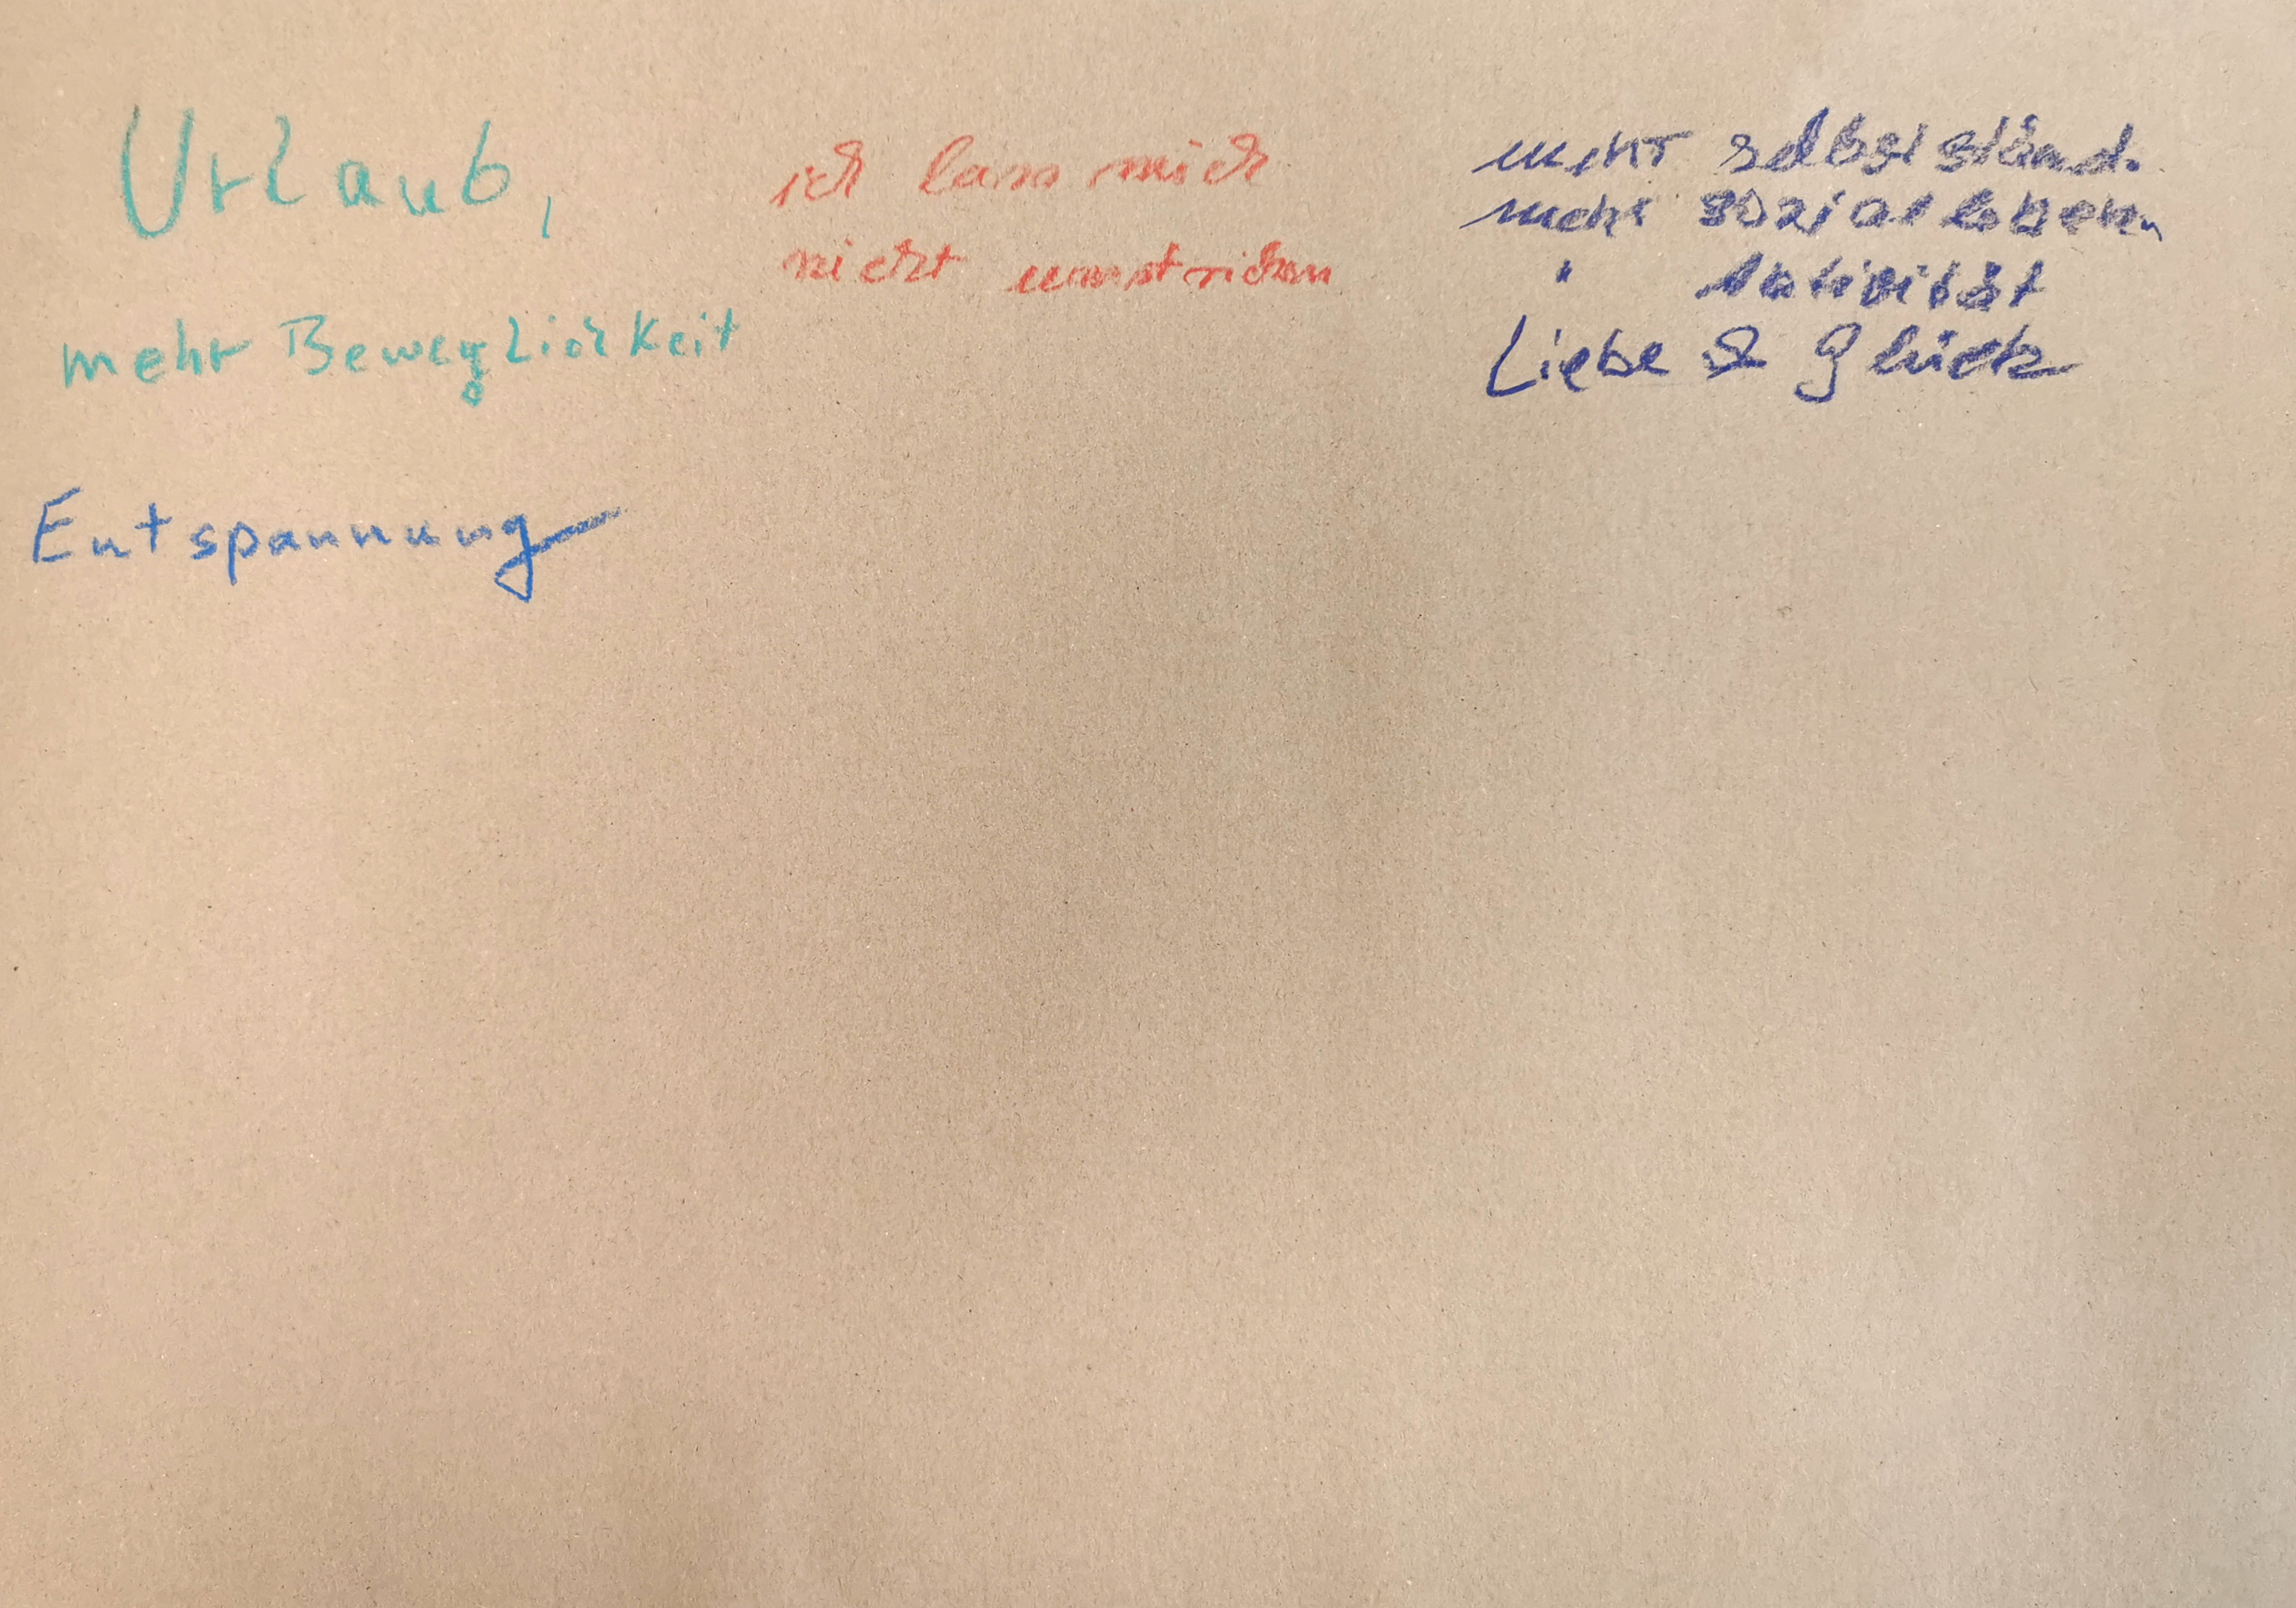 Urlaub,
mehr Beweglichkeit
Entspannung
ich lass mich
nicht umstricken
mehr selbstständ.
mehr sozialleben
" Aktivität
Liebe & Glück